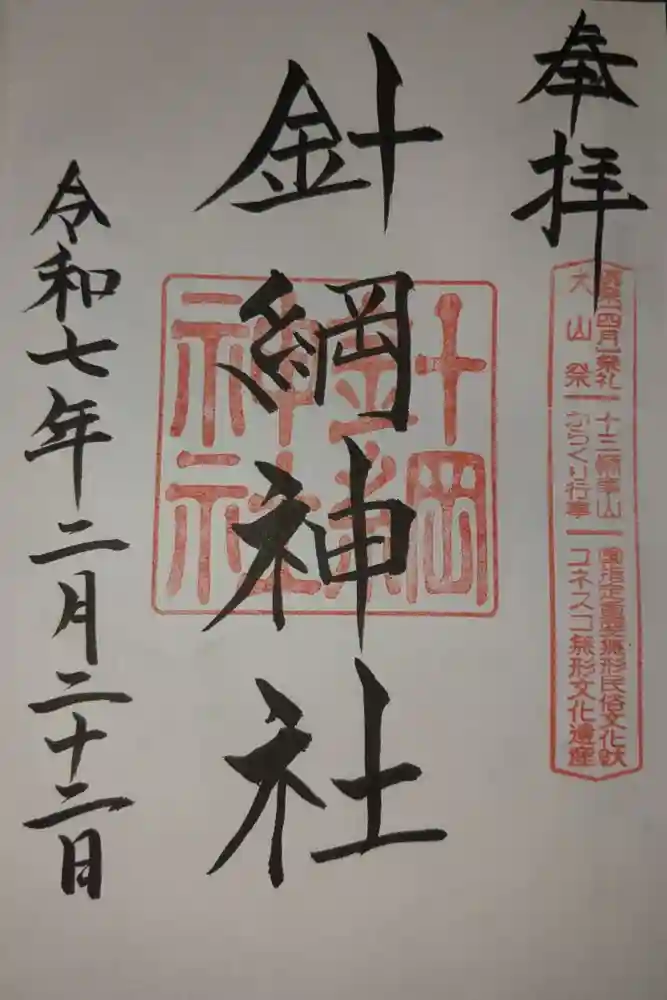 奉拝
犬山祭
十三輌車山
からくり行事
国指定重要無形民俗文化財
ユネスコ無形文化遺産
針綱神社
針綱神社
令和七年二月二十二日